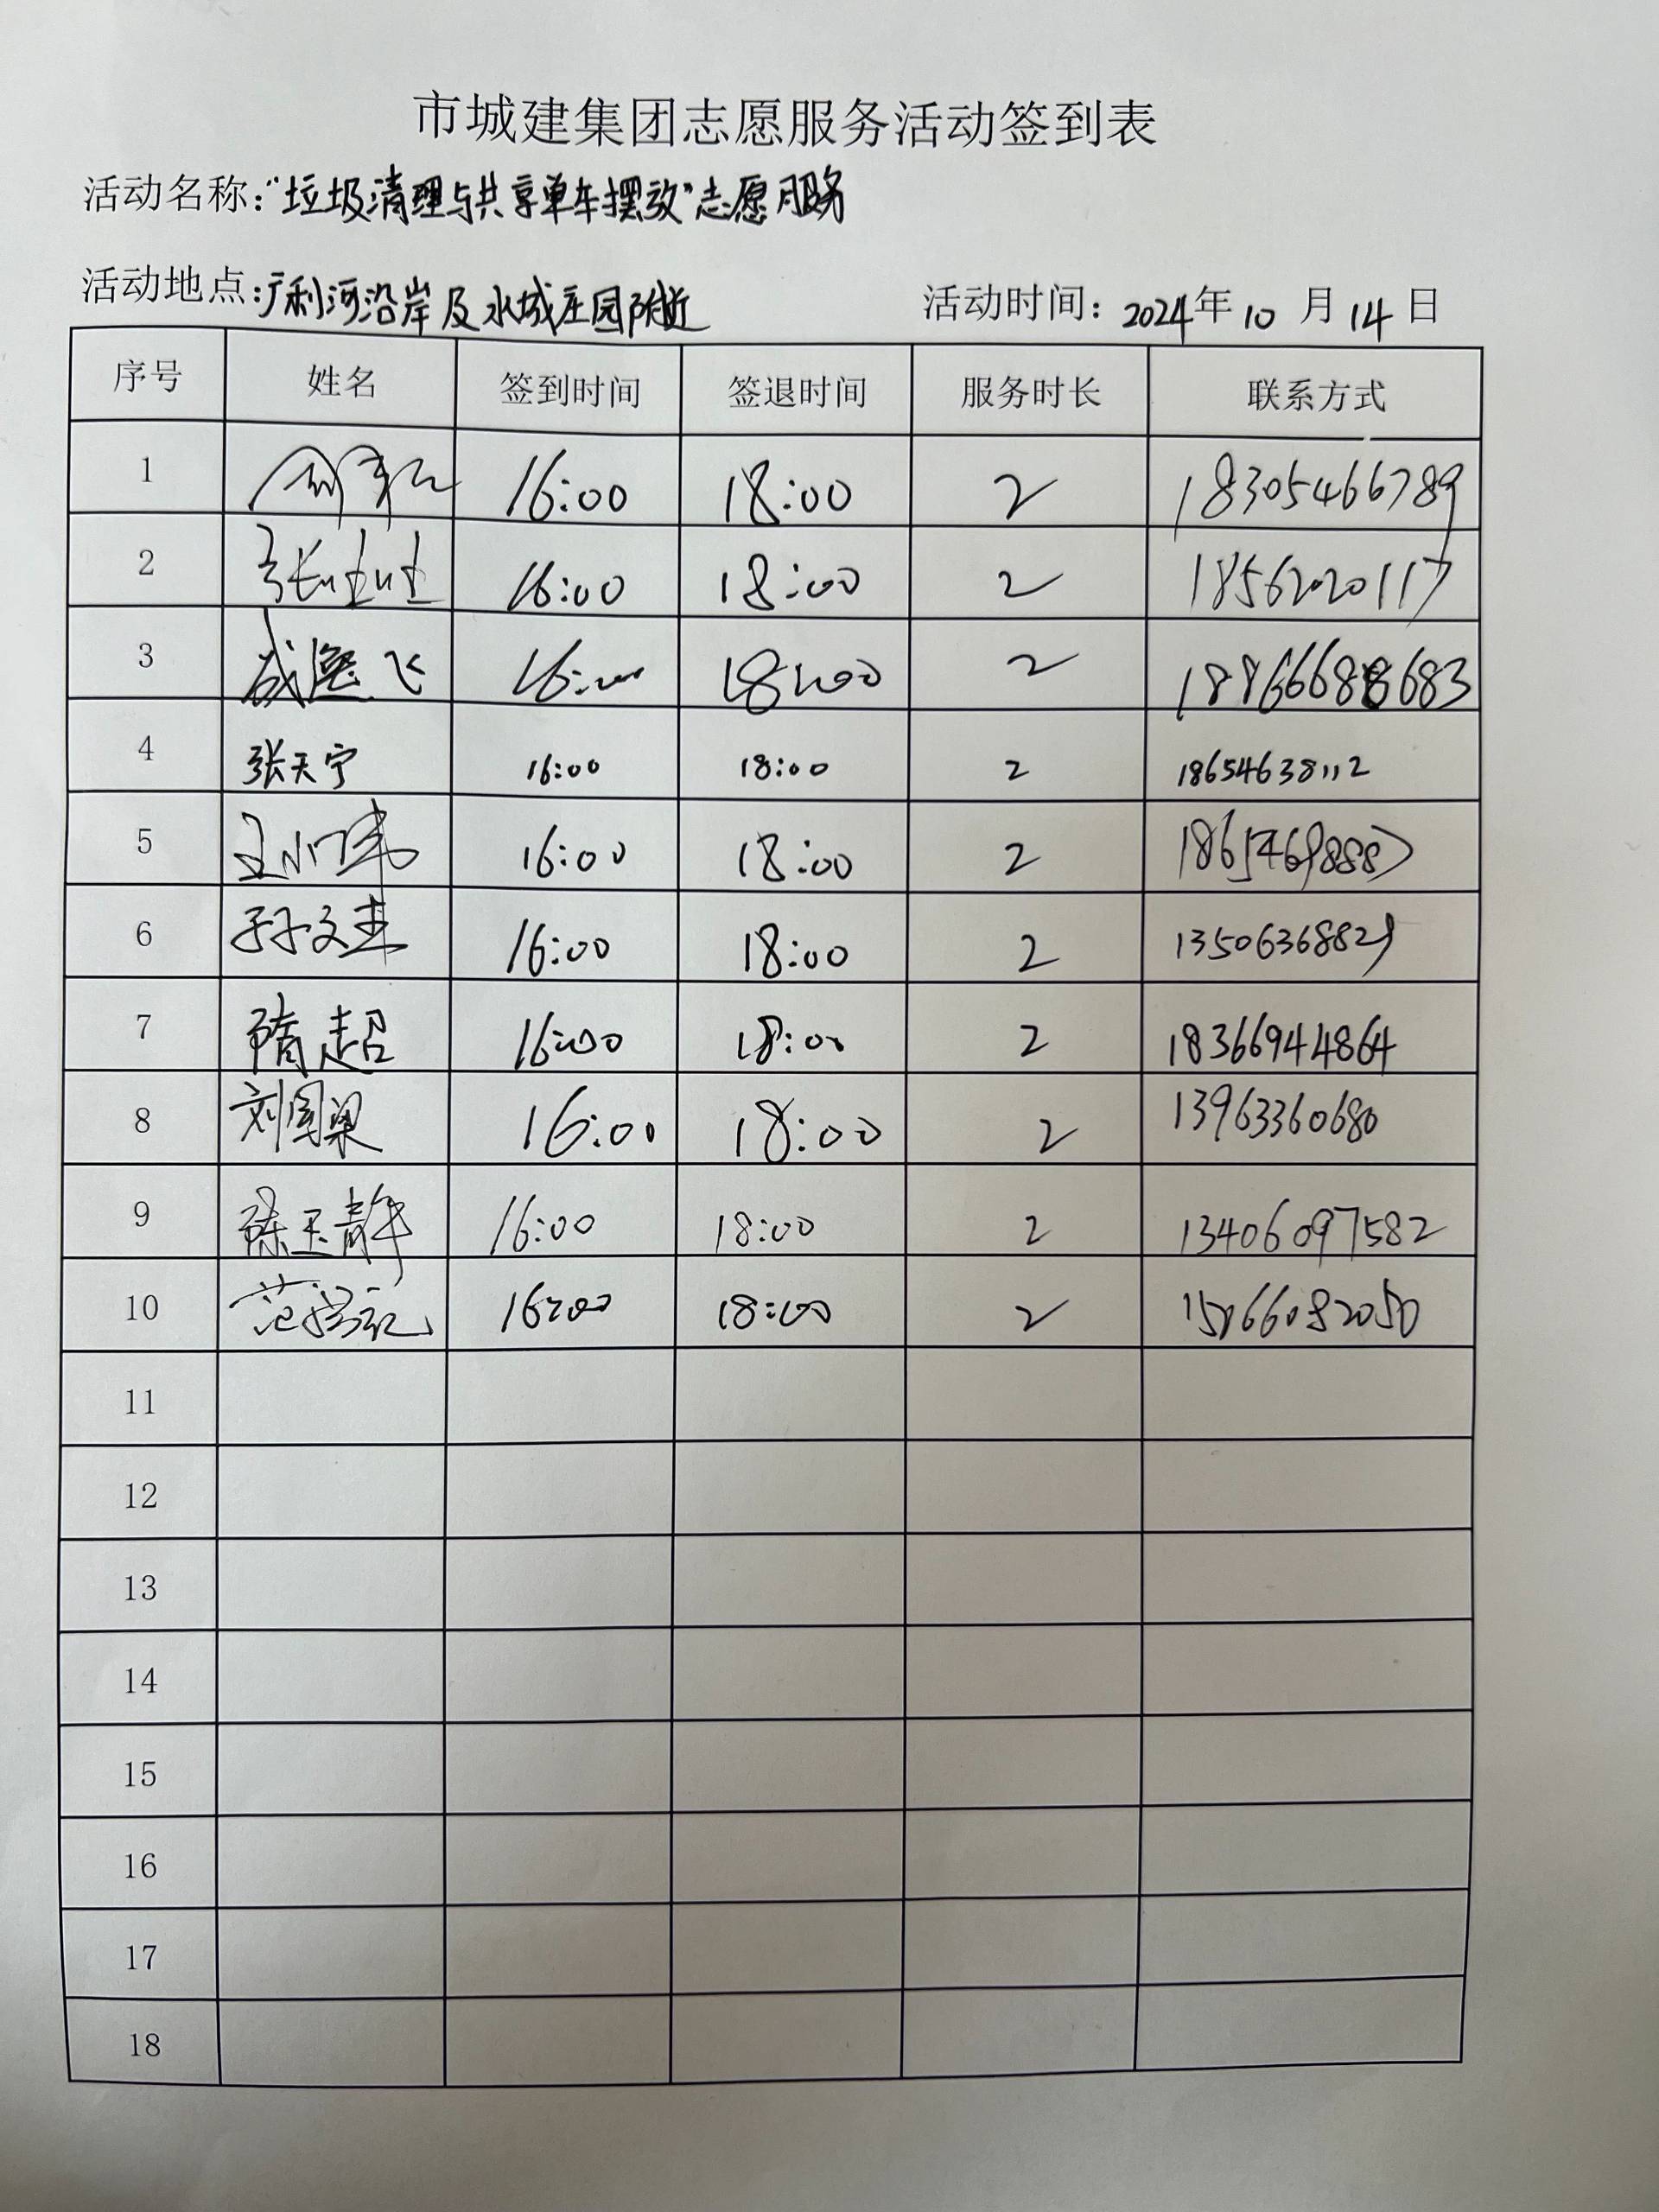 市城建集团志愿服务活动签到表
活动名称:“垃圾清理与共享单车摆放”志愿服务
活动地点:广利河沿岸及水城庄园附近 活动时间: 2024年10月14日
序号 姓名 签到时间 签退时间 服务时长 联系方式
1 16:00 18:00 2 18305466789
2 16:00 18:00 2 18562020117
3 16:00 18:00 2 18866688683
4 张天宁 16:00 18:00 2 18654638112
5 16:00 18:00 2
6 孙文圭 16:00 18:00 2 13506368829
7 隋超 16:00 18:00 2 18366944864
8 刘国梁 16:00 18:00 2 13963360680
9 陈玉静 16:00 18:00 2 13406097582
10 16:00 18:00 2 15066082050
11
12
13
14
15
16
17
18